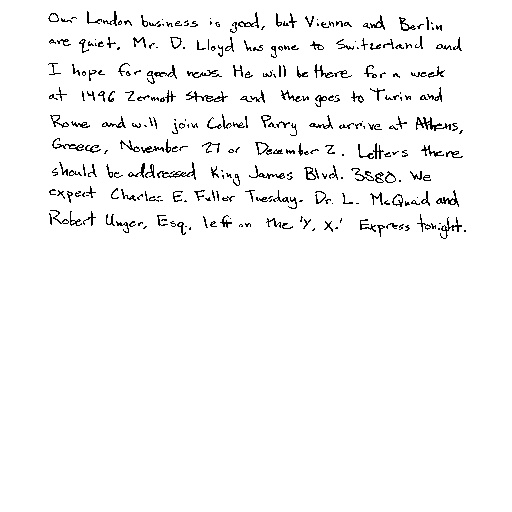 Our London business is good, but Vienna and Berlin
are quiet. Mr. D. Lloyd has gone to Switzerland and
I hope for good news. He will be there for a week
at 1496 Zermott Street and then goes to Turin and
Rome and will join Colonel Parry and arrive at Athens,
Greece, November 27 or December 2. Letters there
should be addressed King James Blvd. 3580. We
expect Charles E. Fuller Tuesday. Dr. L. McQuaid and
Robert Unger, Esq., left on the 'Y, X.' Express tonight.